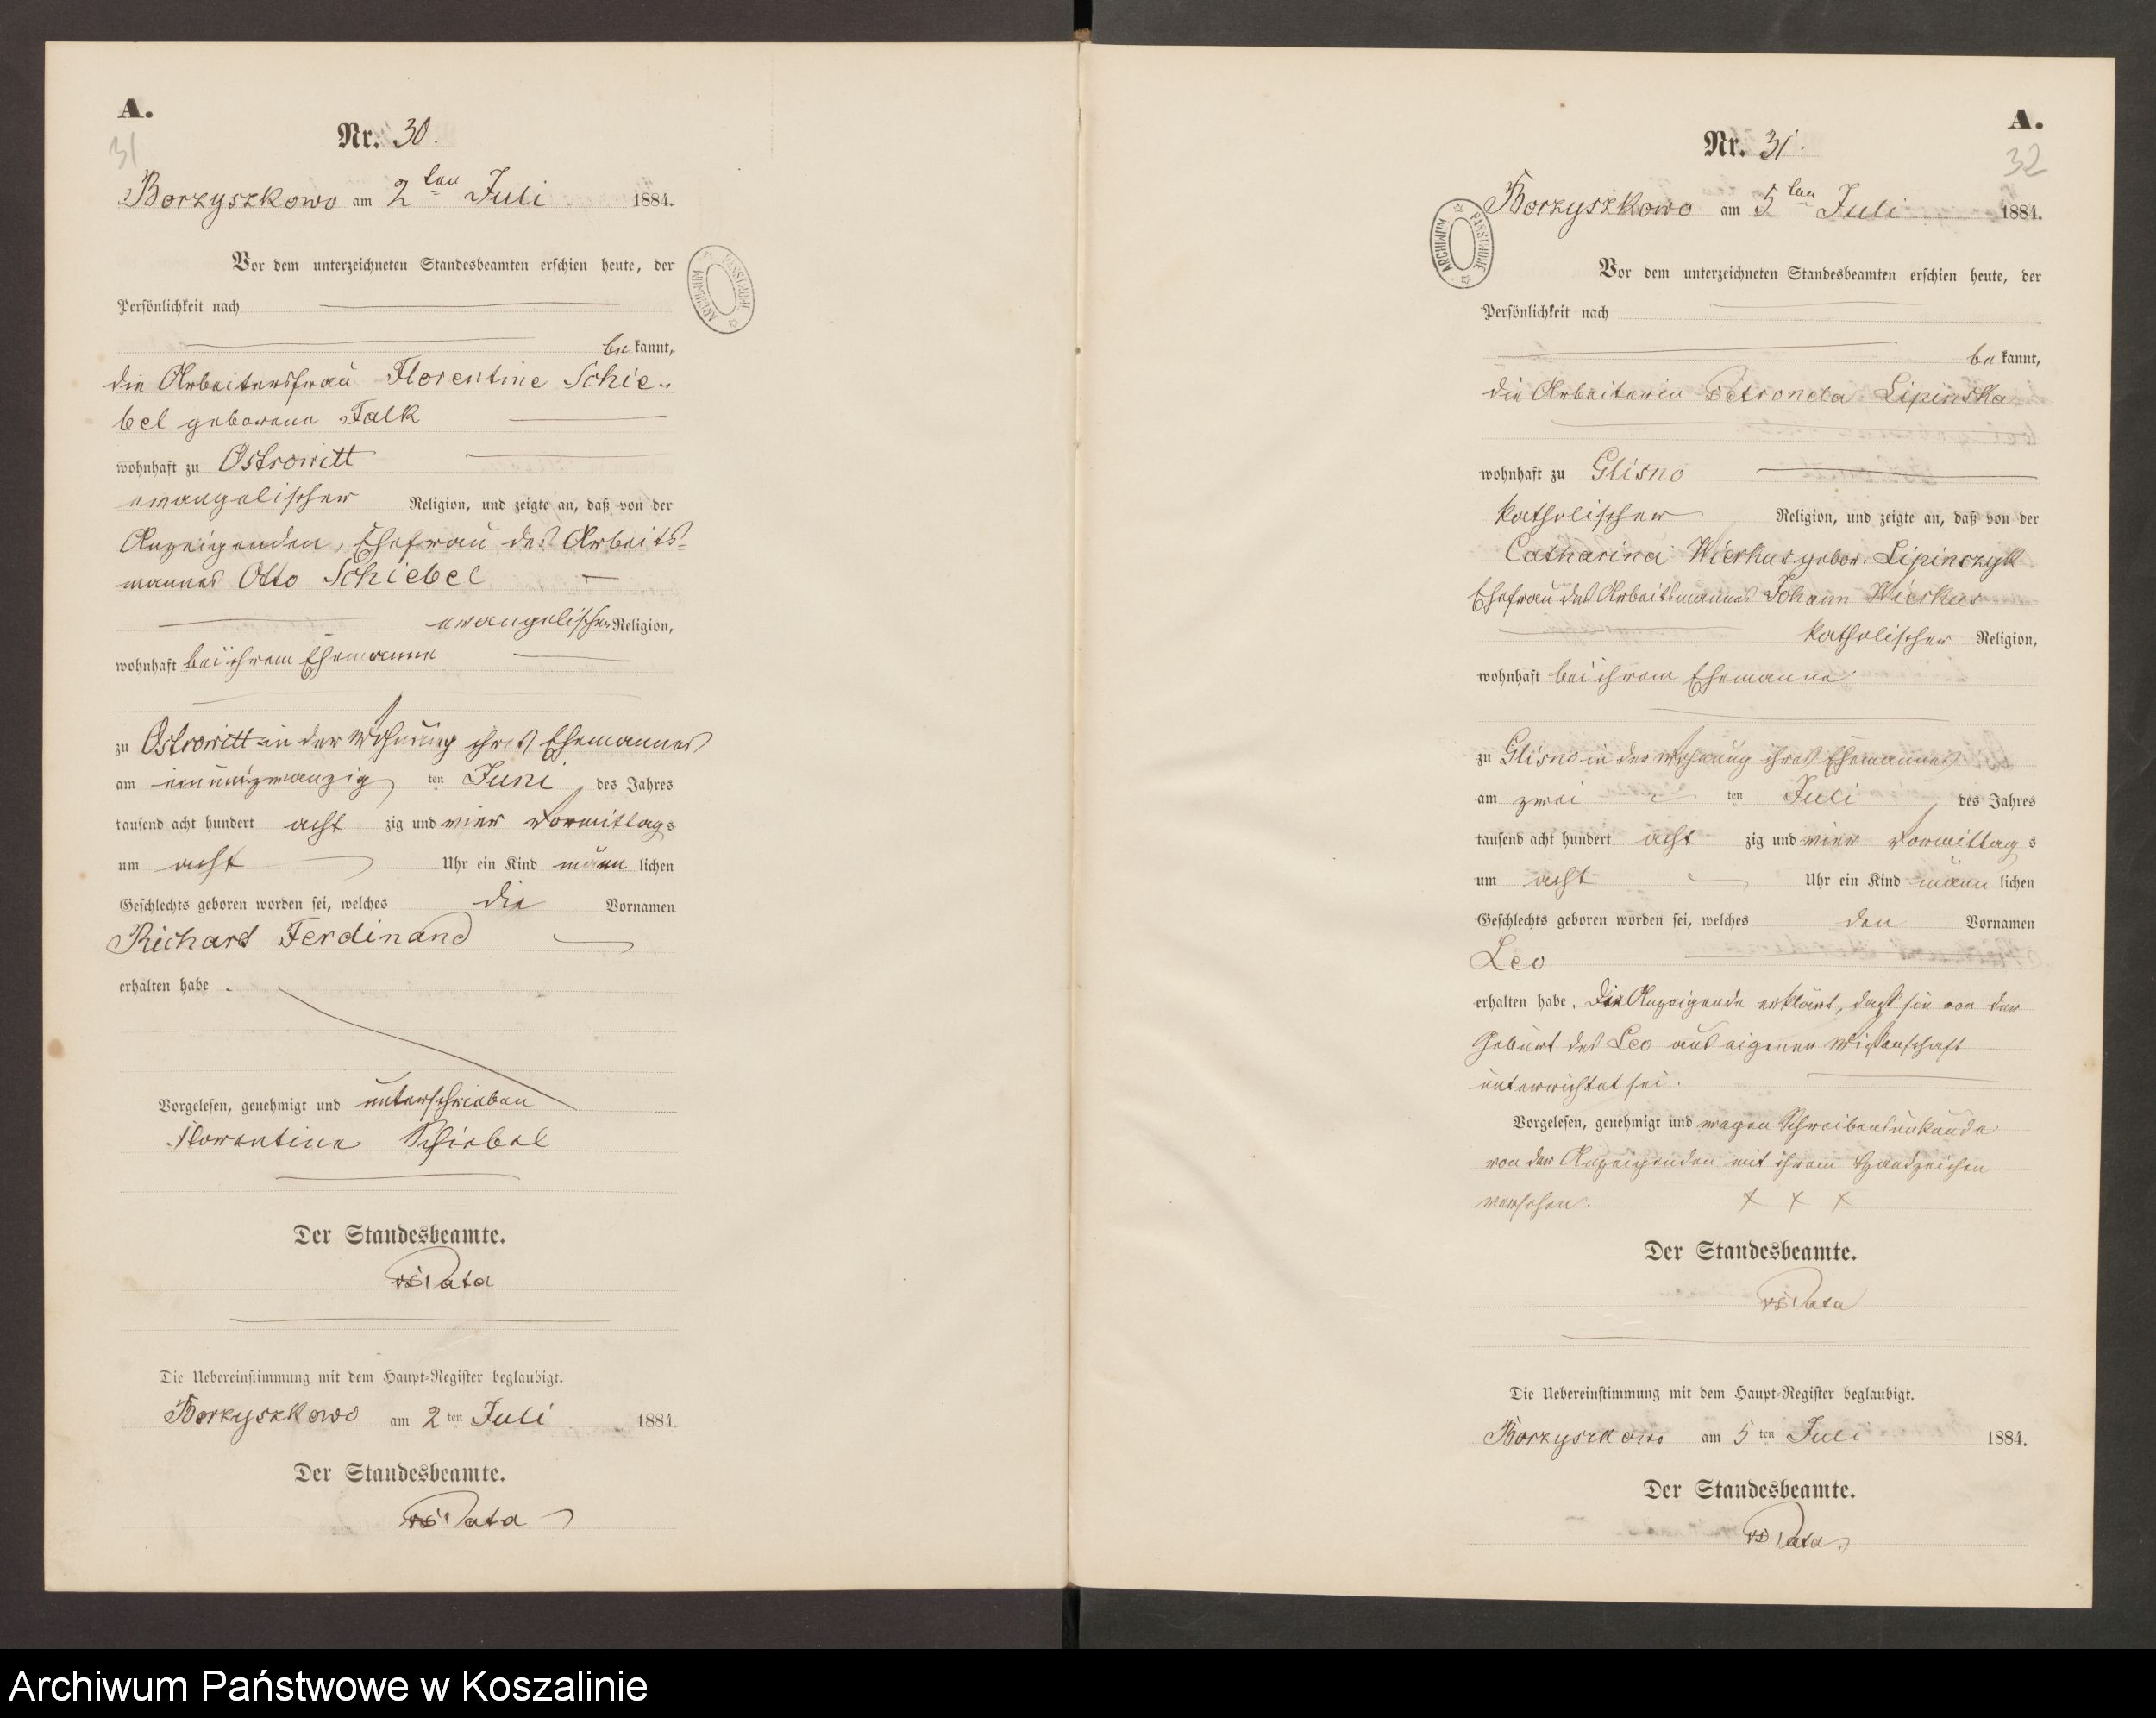 A.
31
Nr. 30.
Borzyszkowo am 2ten Juli 1884.
Vor dem unterzeichneten Standesbeamten erschien heute, der
Persönlichkeit nach
be kannt,
die Arbeitersfrau Florentine Schie-
bel geborene Falk
wohnhaft zu Ostrowitt
evangelischer Religion, und zeigte an, daß von der
Anzeigenden, Ehefrau des Arbeits-
mannes Otto Schiebel
evangelischer Religion,
wohnhaft bei ihrem Ehemanne
zu Ostrowitt in der Wohnung ihres Ehemannes
am einundzwanzig ten Juni des Jahres
tausend acht hundert acht zig und vier Vormittags
um acht Uhr ein Kind männ lichen
Geschlechts geboren worden sei, welches die Vornamen
Richard Ferdinand
erhalten habe.
Vorgelesen, genehmigt und unterschrieben
Florentine Schiebel
Der Standesbeamte.
Pata
Die Uebereinstimmung mit dem Haupt-Register beglaubigt.
Borzyszkowo am 2 ten Juli 1884.
Der Standesbeamte.
Pata
ARCHIWUM PAŃSTWOWE
A.
32
Nr. 31.
Borzyszkowo am 5ten Juli 1884.
Vor dem unterzeichneten Standesbeamten erschien heute, der
Persönlichkeit nach
be kannt,
die Arbeiterin Petronela Lipinska
wohnhaft zu Glisno
katholischer Religion, und zeigte an, daß von der
Catharina Wierkus gebor. Lipinczyk
Ehefrau des Arbeitsmannes Johann Wierkus
katholischer Religion,
wohnhaft bei ihrem Ehemanne
zu Glisno in der Wohnung ihres Ehemannes
am zwei ten Juli des Jahres
tausend acht hundert acht zig und vier Vormittag s
um acht Uhr ein Kind männ lichen
Geschlechts geboren worden sei, welches den Vornamen
Leo
erhalten habe. Die Anzeigende erklärt, daß sie von der
Geburt des Leo aus eigener Wissenschaft
unterrichtet sei.
Vorgelesen, genehmigt und wegen Schreibensunkunde
von der Anzeigenden mit ihrem Handzeichen
versehen. x x x
Der Standesbeamte.
Pata
Die Uebereinstimmung mit dem Haupt-Register beglaubigt.
Borzyszkowo am 5 ten Juli 1884.
Der Standesbeamte.
Pata
ARCHIWUM PAŃSTWOWE
Archiwum Państwowe w Koszalinie